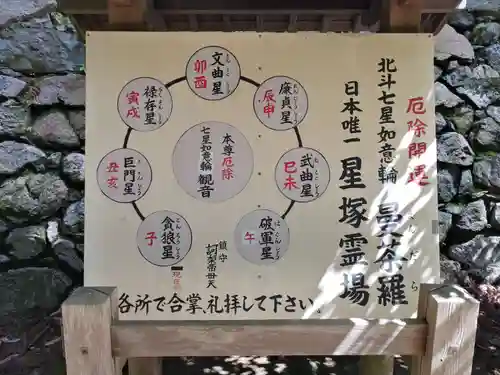 厄除開運
北斗七星如意輪曼荼羅
まんだら
日本唯一星塚霊場
本尊厄除
七星如意輪観音
文曲星
卯酉
廉貞星
辰申
武曲星
巳未
破軍星
午
鎮守
訶梨帝母天
貪狼星
子
現在地
巨門星
丑亥
禄存星
寅戌
各所で合掌、礼拝して下さい。